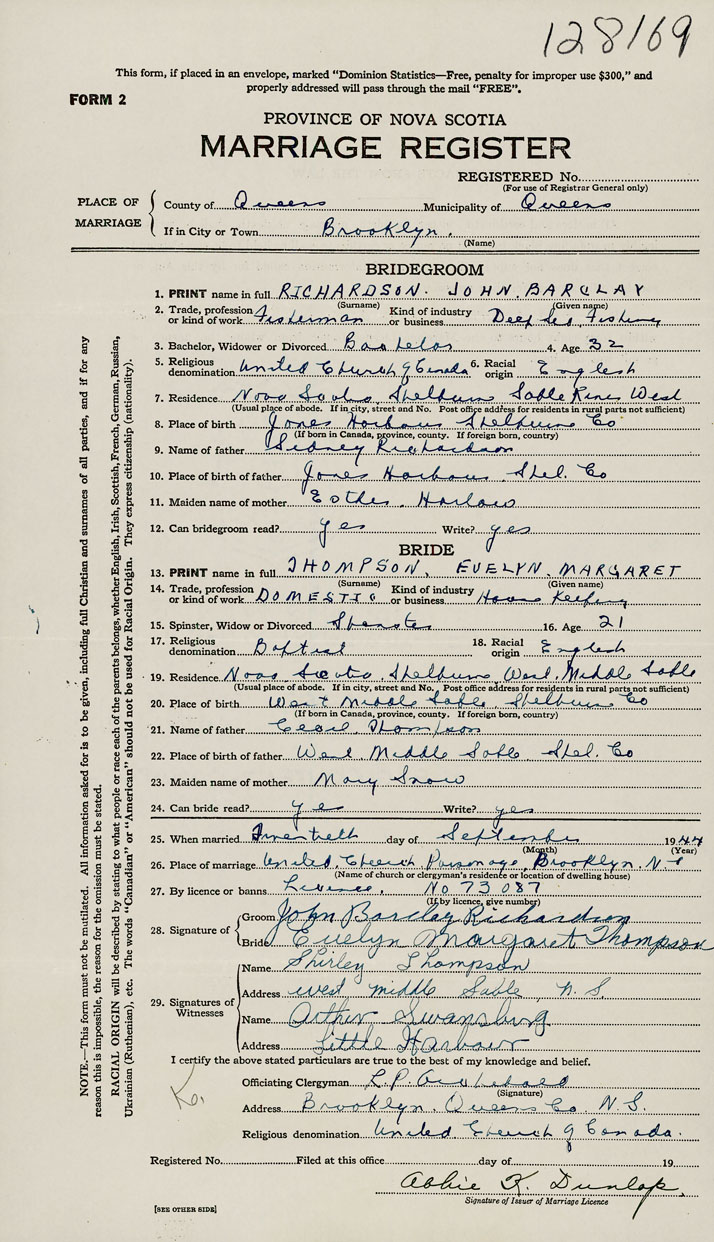 128169
This form, if placed in an envelope, marked "Dominion Statistics—Free, penalty for improper use $300," and
properly addressed will pass through the mail "FREE".
FORM 2
PROVINCE OF NOVA SCOTIA
MARRIAGE REGISTER
REGISTERED No.
(For use of Registrar General only)
PLACE OF MARRIAGE
County of Queens Municipality of Queens
If in City or Town Brooklyn.
(Name)
BRIDEGROOM
1. PRINT name in full RICHARDSON. JOHN BARCLAY
(Surname) (Given name)
2. Trade, profession or kind of work Fisherman Kind of industry or business Deep Sea Fishing
3. Bachelor, Widower or Divorced Bachelor 4. Age 32
5. Religious denomination United Church of Canada 6. Racial origin English
7. Residence Nova Scotia, Shelburne Sable River West
(Usual place of abode. If in city, street and No. Post office address for residents in rural parts not sufficient)
8. Place of birth Jones Harbour Shelburne Co
(If born in Canada, province, county. If foreign born, country)
9. Name of father Sidney Richardson
10. Place of birth of father Jones Harbour, Shel. Co
11. Maiden name of mother Esther Harlow
12. Can bridegroom read? yes Write? yes
BRIDE
13. PRINT name in full THOMPSON, EVELYN, MARGARET
(Surname) (Given name)
14. Trade, profession or kind of work DOMESTIC Kind of industry or business House Keeping
15. Spinster, Widow or Divorced Spinster 16. Age 21
17. Religious denomination Baptist 18. Racial origin English
19. Residence Nova Scotia, Shelburne, West Middle Sable
(Usual place of abode. If in city, street and No. Post office address for residents in rural parts not sufficient)
20. Place of birth West Middle Sable, Shelburne Co
(If born in Canada, province, county. If foreign born, country)
21. Name of father Cecil Thompson
22. Place of birth of father West Middle Sable Shel. Co
23. Maiden name of mother Mary Snow
24. Can bride read? yes Write? yes
25. When married day of September 1944
(Month) (Year)
26. Place of marriage United Church Parsonage, Brooklyn. N-S
(Name of church or clergyman's residence or location of dwelling house)
27. By licence or banns Licence, No 73087
(If by licence, give number)
28. Signature of
Groom John Barclay Richardson
Bride Evelyn Margaret Thompson
29. Signatures of Witnesses
Name Shirley Thompson
Address West middle Sable, N. S.
Name Arthur Swansburg
Address Little Harbour
I certify the above stated particulars are true to the best of my knowledge and belief.
Officiating Clergyman L. P. Archibald
(Signature)
Address Brooklyn, Queens Co. N. S.
Religious denomination United Church of Canada.
Registered No. Filed at this office day of 19
Abbie K. Dunlop,
Signature of Issuer of Marriage Licence
[SEE OTHER SIDE]
NOTE.—This form must not be mutilated. All information asked for is to be given, including full Christian and surnames of all parties, and if for any
reason this is impossible, the reason for the omission must be stated.
RACIAL ORIGIN will be described by stating to what people or race each of the parents belongs, whether English, Irish, Scottish, French, German, Russian,
Ukrainian (Ruthenian), etc. The words "Canadian" or "American" should not be used for Racial Origin. They express citizenship (nationality).